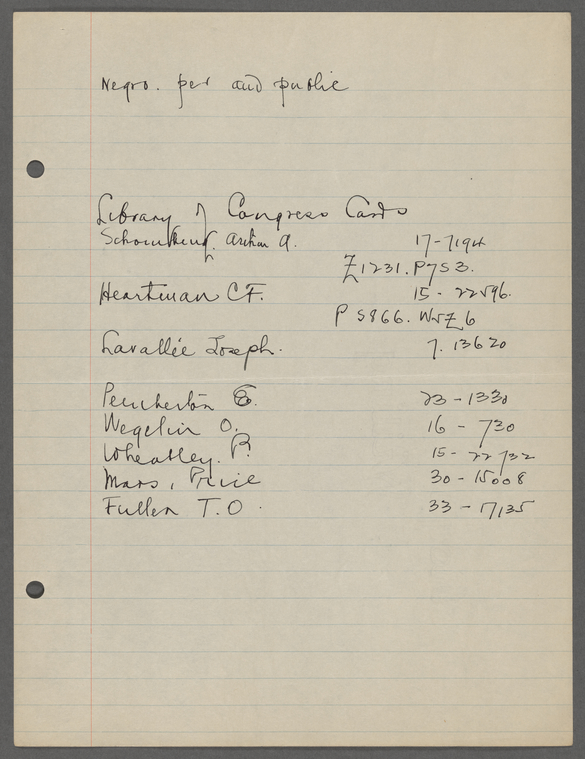 Negro. per and public
Library of Congress Cards
Schomburg, Arthur A. 17-7194
Z1231.P7S3.
Heartman CF. 15-22596.
PS866.W5Z6
Lavallée Joseph. 7.13620
Pemberton E. 23-1330
Wegelin O. 16-730
Wheatley. P. 15-22732
Mars, Price 30-15008
Fuller T.O. 33-17135